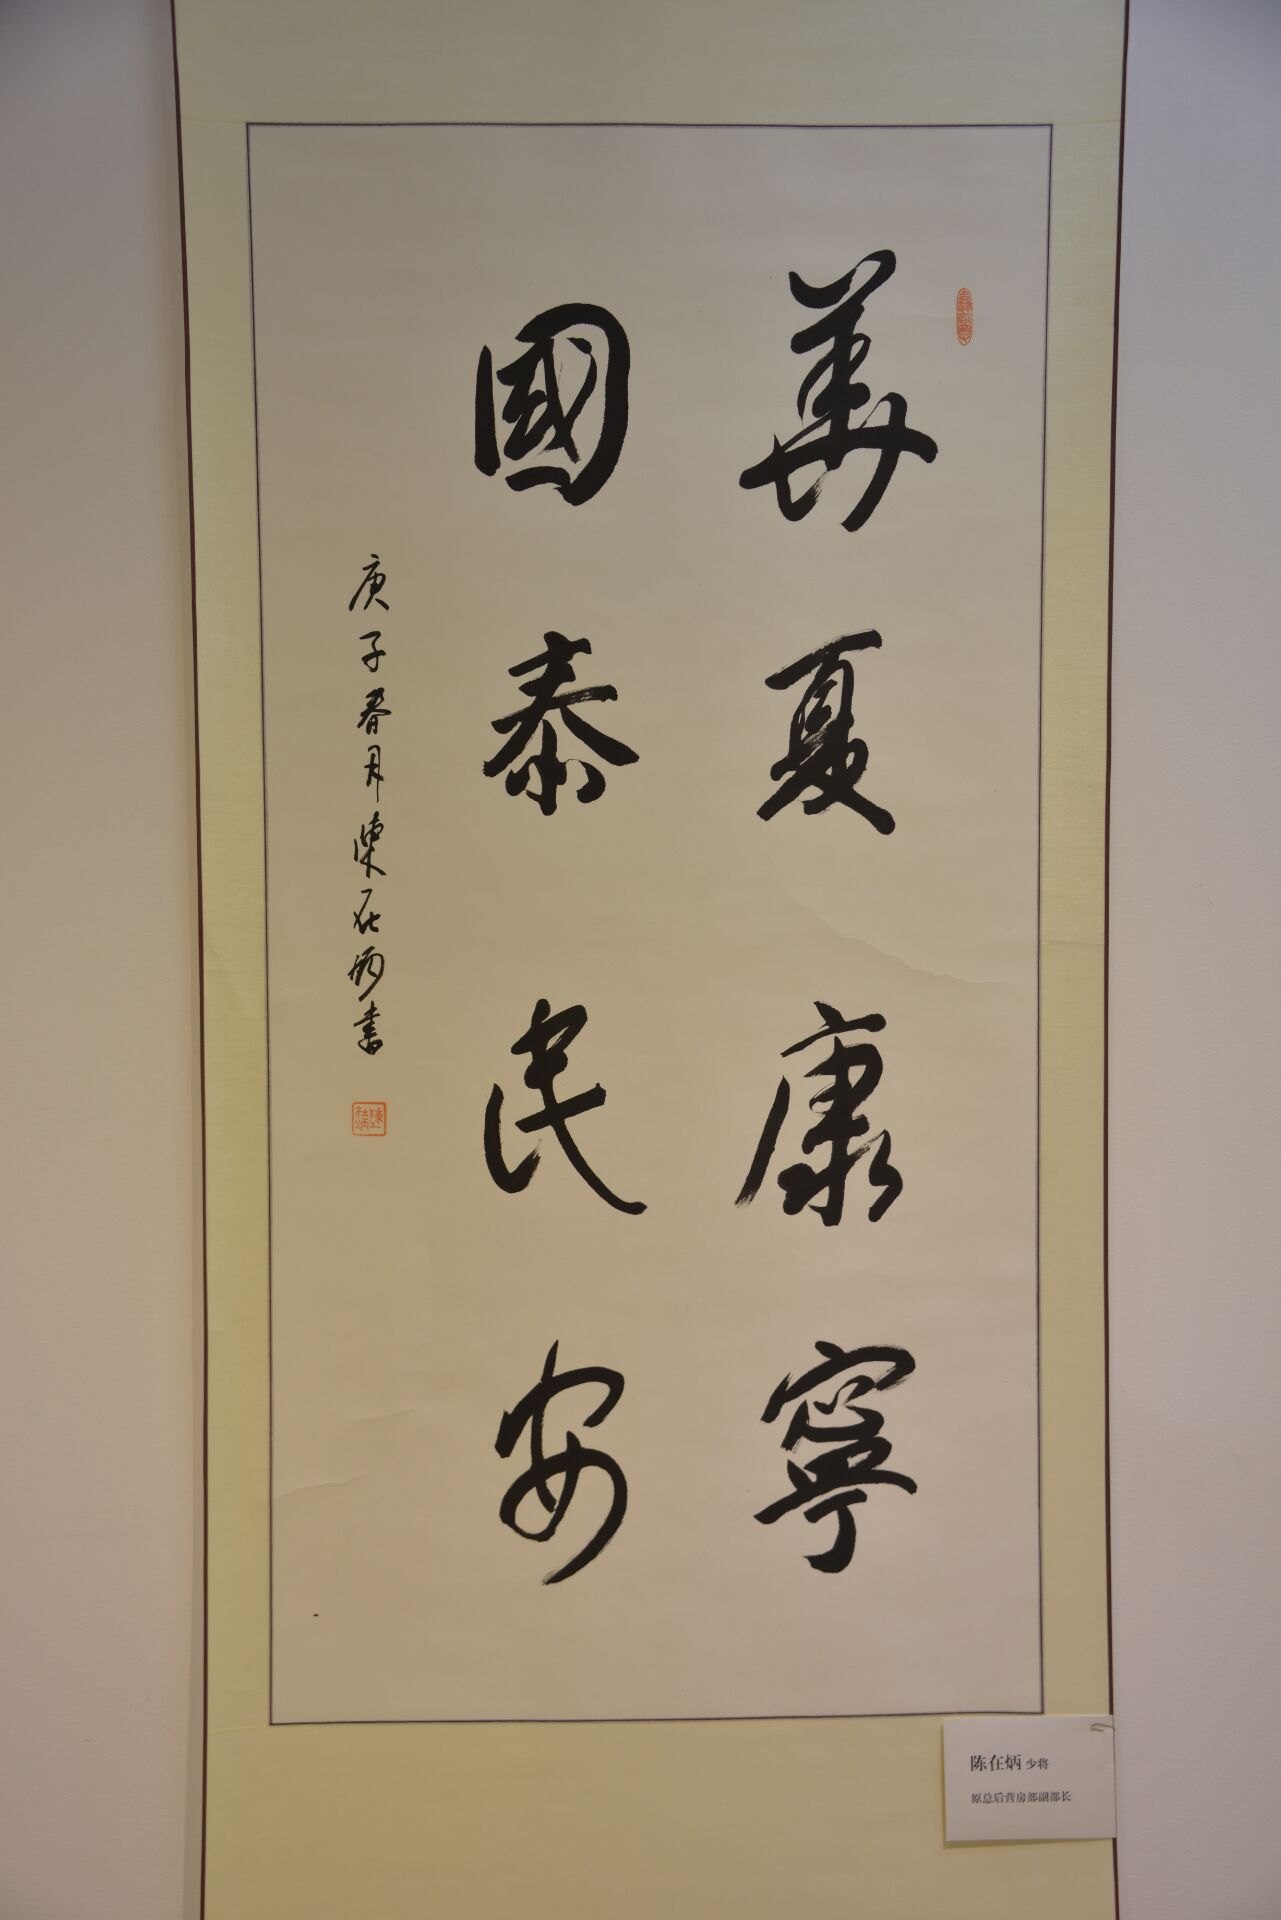 華夏康寧
國泰民安
庚子春月陳在炳書
陳在炳
陈在炳 少将
原总后营房部副部长